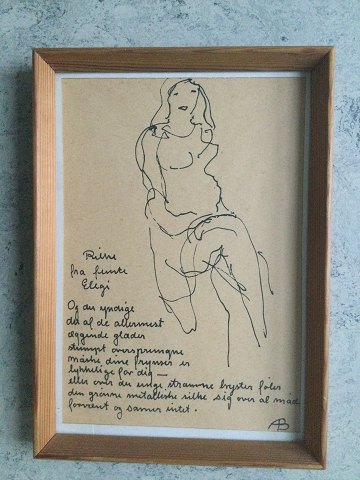 Rilke
fra femte
Elegi
Og du yndige
du af de allermest
æggende glæder
stumt oversprungne
måske dine frynser er
lykkelige for dig —
eller over de unge stramme bryster føler
den grønne metalliske silke sig over al måde
forvænt og savner intet.
AB